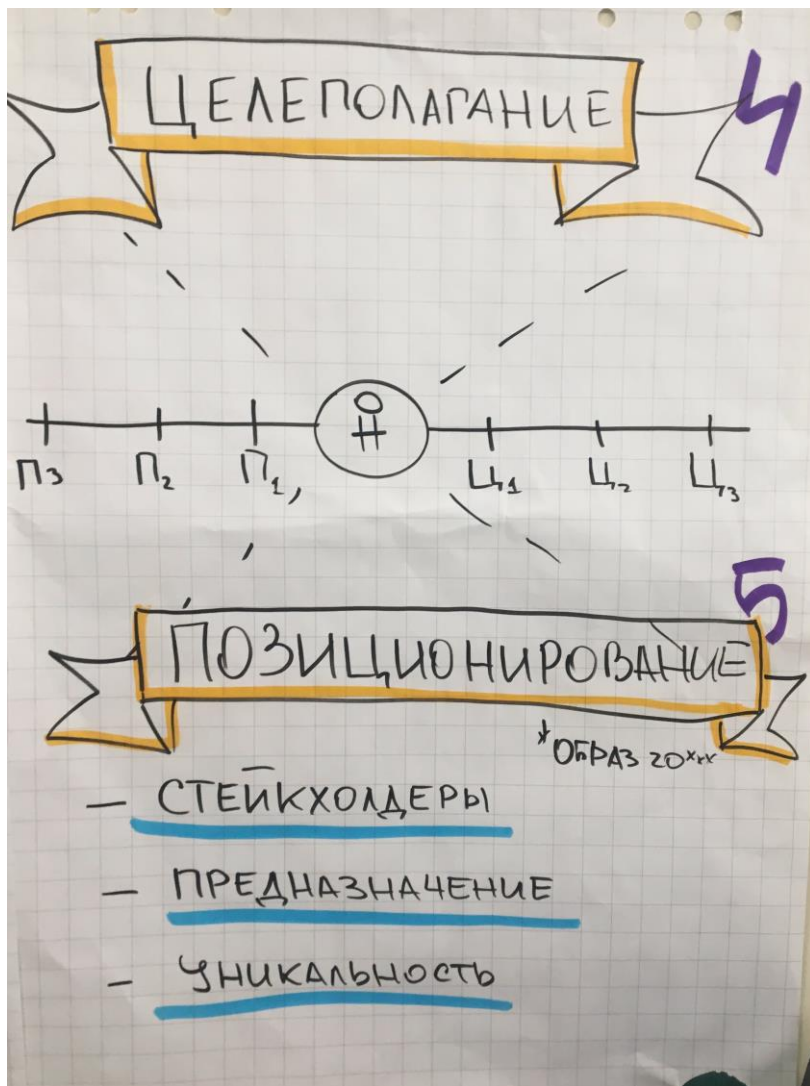 ЦЕЛЕПОЛАГАНИЕ
4
П3 П2 П1, Ц1 Ц2 Ц3
5
ПОЗИЦИОНИРОВАНИЕ
*ОБРАЗ 20ххх
— СТЕЙКХОЛДЕРЫ
— ПРЕДНАЗНАЧЕНИЕ
— УНИКАЛЬНОСТЬ